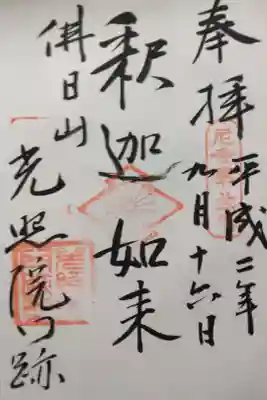 奉拝
平成二年
九月十六日
釈迦如来
佛日山
光照院門跡